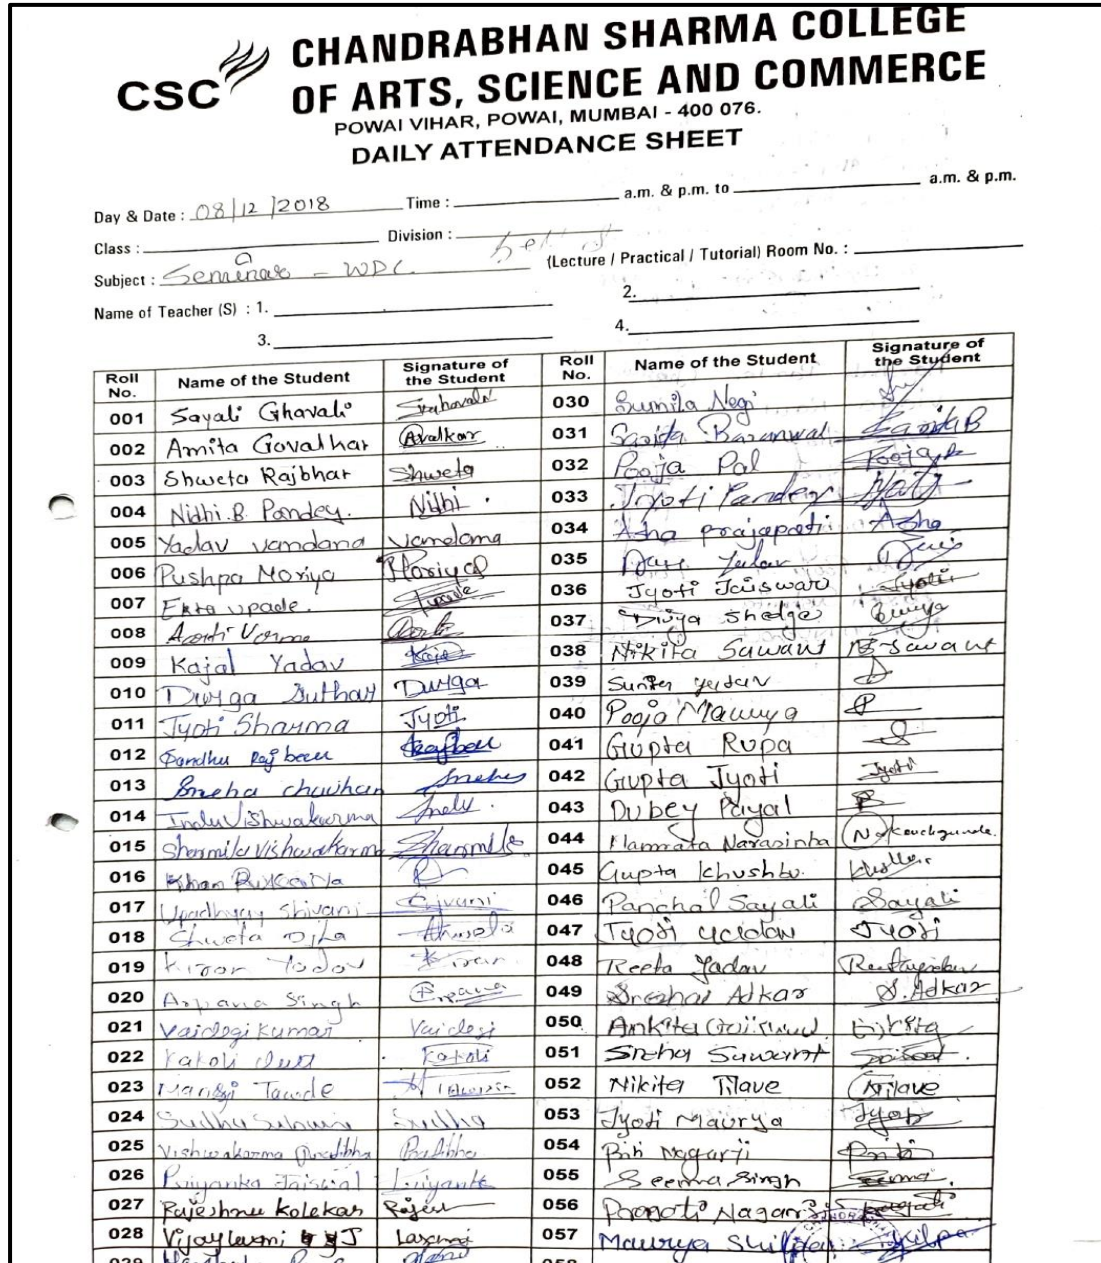 CSC
CHANDRABHAN SHARMA COLLEGE
OF ARTS, SCIENCE AND COMMERCE
POWAI VIHAR, POWAI, MUMBAI - 400 076.
DAILY ATTENDANCE SHEET
Day & Date : 08/12/2018 Time : a.m. & p.m. to a.m. & p.m.
Class : Division :
Subject : Seminar - WDC (Lecture / Practical / Tutorial) Room No. :
Name of Teacher (S) : 1. 2.
3. 4.
Roll No. Name of the Student Signature of the Student Roll No. Name of the Student Signature of the Student
001 Sayali Ghavali 030 Sumila Negi
002 Amita Govalkar 031 Sarida Baranwal SaridaB
003 Shweta Rajbhar Shweta 032 Pooja Pal Pooja
004 Nidhi.B. Pandey. Nidhi. 033 Jyoti Pandey Jyoti
005 Yadav Vandana Vandana 034 Asha Prajapati Asha
006 Pushpa Moriya 035
007 Ekta Upade. 036 Jyoti Jaiswar Jyoti
008 Aarti Verma 037 Divya Shedge Divya
009 Kajal Yadav Kajal 038 Nikita Sawant N.Sawant
010 Durga Suthar Durga 039 yadav
011 Jyoti Sharma Jyoti 040 Pooja Maurya
012 041 Gupta Rupa
013 Sneha chauhan Sneha 042 Gupta Jyoti Jyoti
014 Indu Vishwakarma Indu. 043 Dubey Payal
015 Sharmila Vishwakarma Sharmila 044 Namrata Narasinha
016 Khan 045 Gupta Khushbu.
017 Upadhyay Shivani Shivani 046 Panchal Sayali Sayali
018 Shweta Ojha 047 Jyoti yadav Jyoti
019 Kiran Yadav Kiran 048 Reeta Yadav
020 Arpana Singh Arpana 049 Adkar S.Adkar
021 Vaidegi Kumar Vaidegi 050 Ankita
022 Kakoli Kakoli 051 Sneha Sawant
023 Mansi Tawde 052 Nikita Tilave NTilave
024 Sudha Sudha 053 Jyoti Maurya Jyoti
025 Vishwakarma Pratibha Pratibha 054 Priti Nagarji Priti
026 Priyanka Jaiswal Priyanka 055 Seema Singh Seema.
027 Kolekar 056 Pragati Nagarji Pragati
028 Vijaylaxmi J Laxmi 057 Maurya Shilpa Shilpa